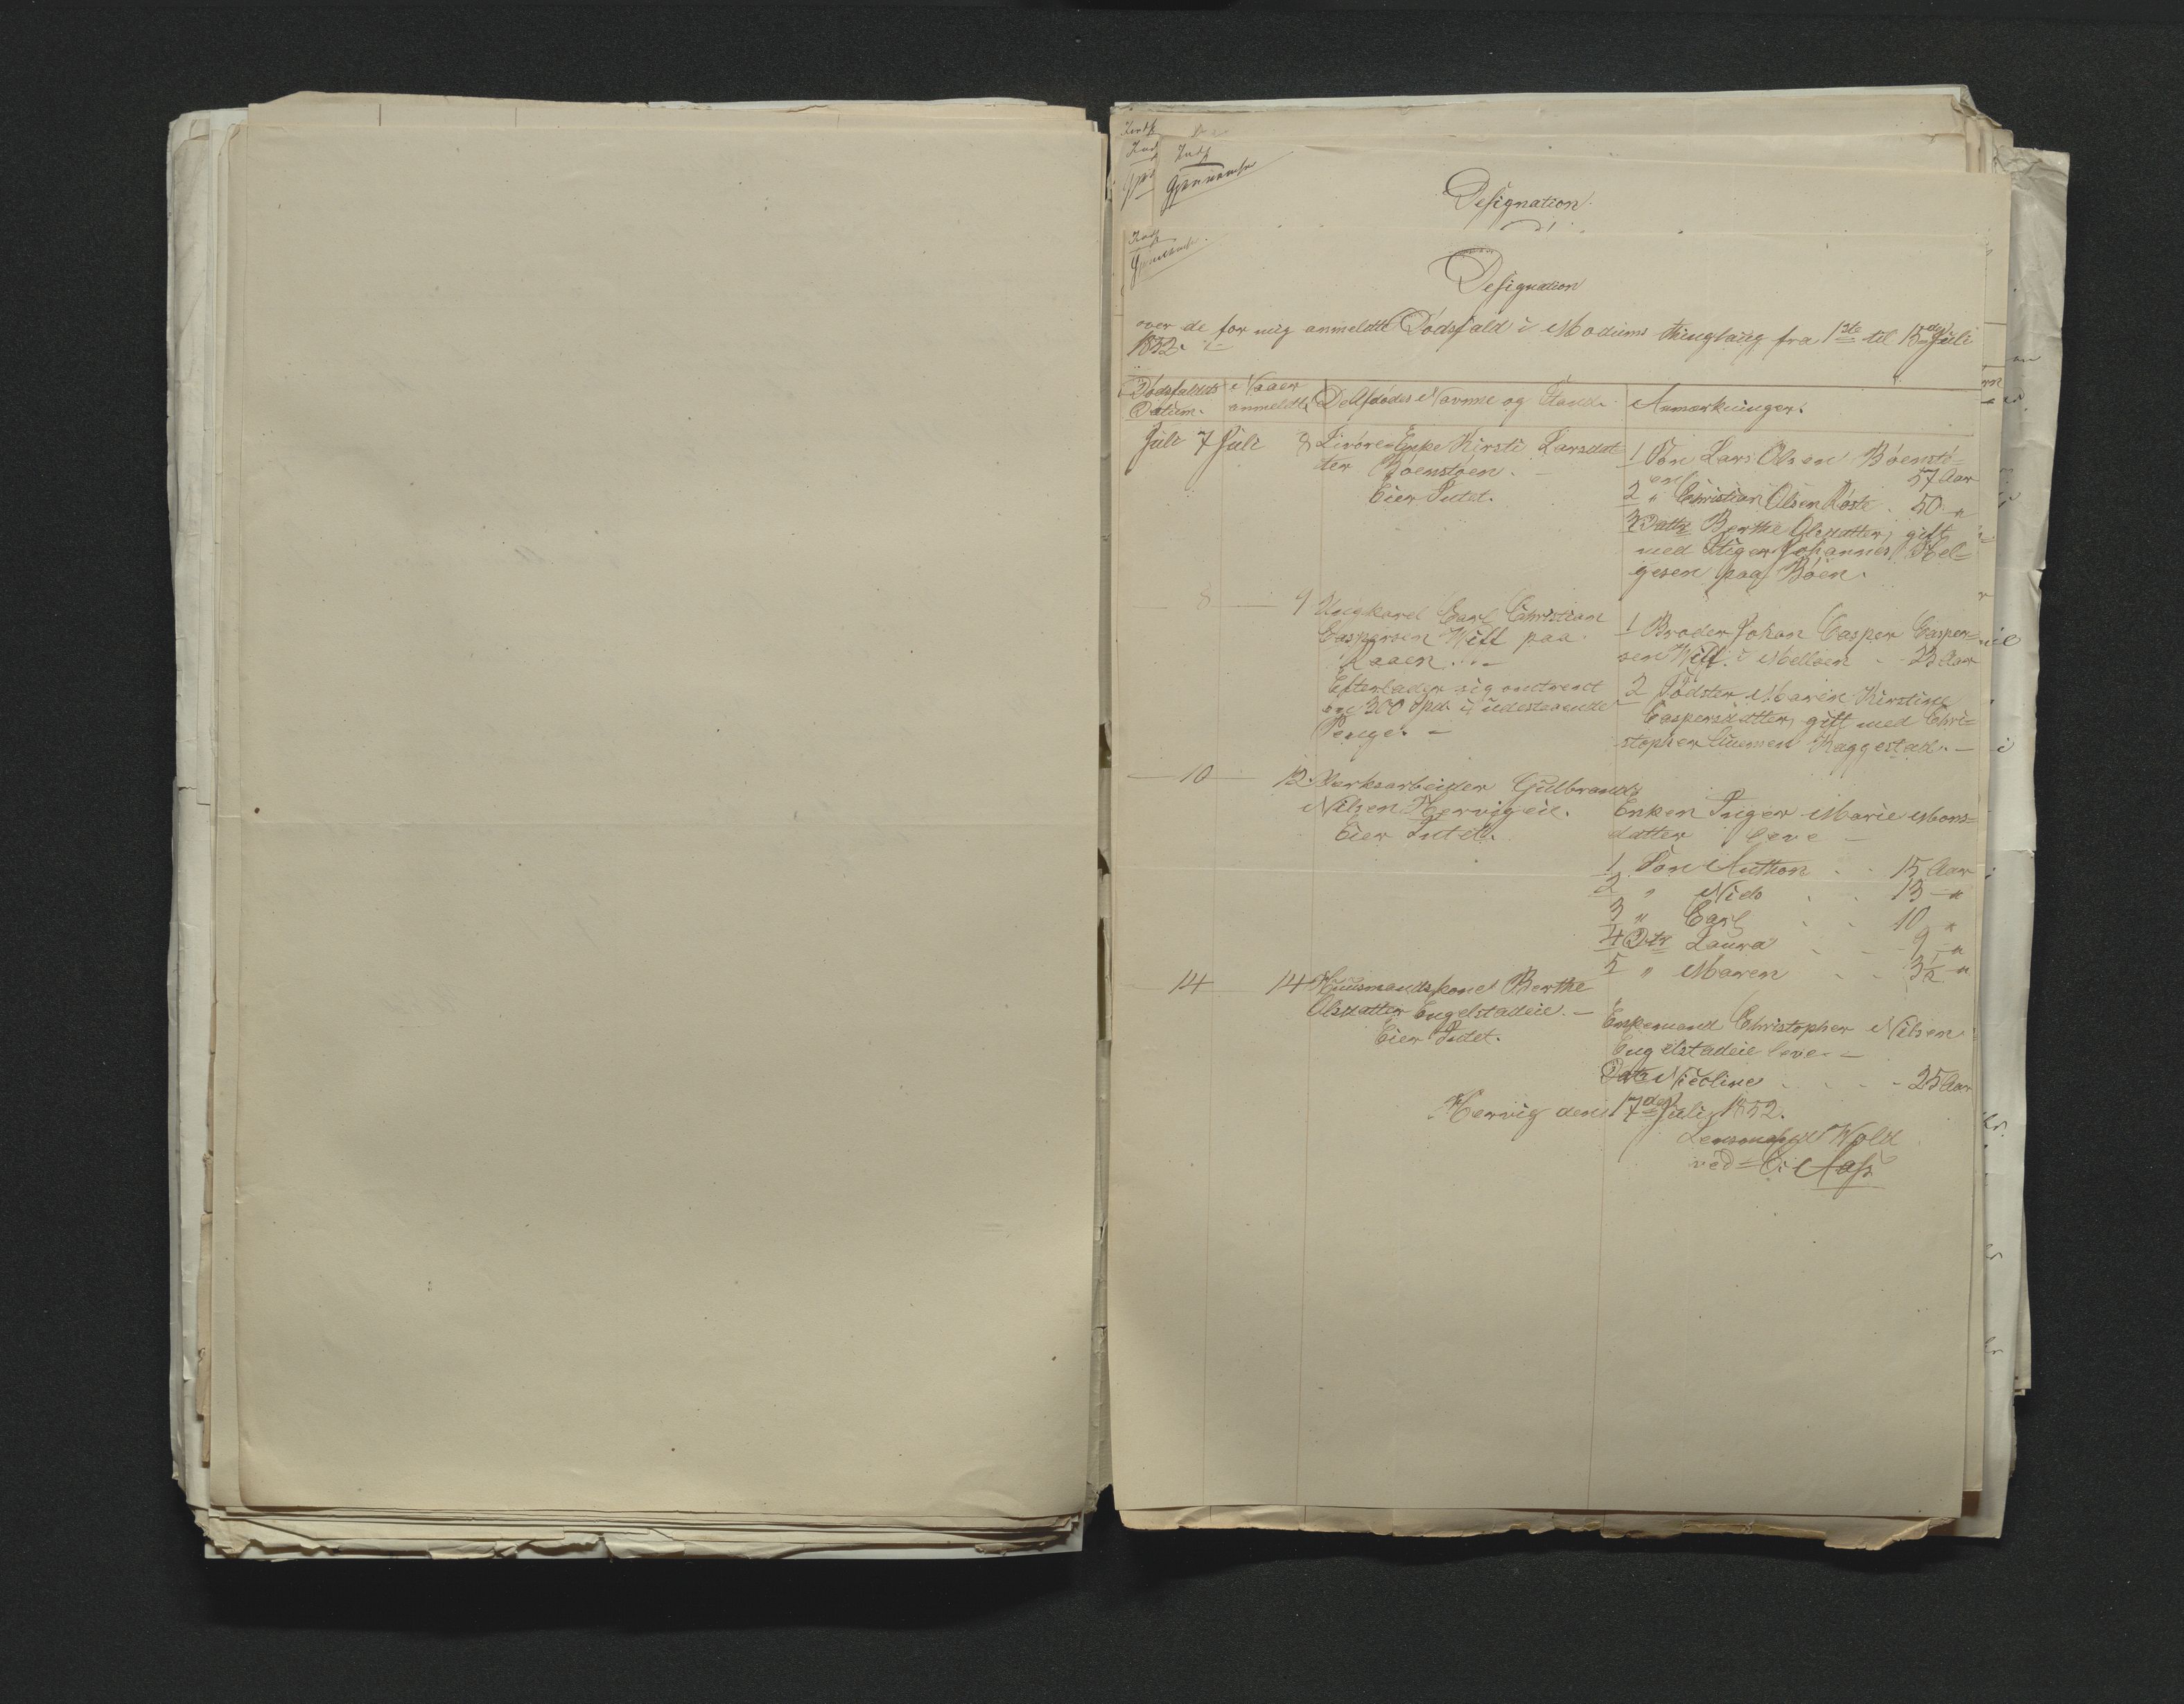 Designation
Designation
over de for mig anmeldte Dødsfald i Modums Thinglaug fra 1ste til 15de Juli
1852.
Dødsfaldets Datum.
Naaer anmeldt.
De Afdødes Navne og Stand.
Anmærkninger.
Juli 7 Juli 8 Livøres Enke Kirsti Larsdat-
ter Böenstøen.
Eier Intet.
1 Søn Lars Olsen Böenstø-
en 57 Aar
2 " Christian Olsen Röste 50 "
3 Dattr Berthe Olsdatter, gift
med Stiger Johannes Hel-
gesen paa Böen.
8 9 Ungkarl Carl Christian
Caspersen Will paa
Kaaen
Efterlader sig omtrendt
300 Spd i udestaaende
Penge.
1 Broder Johan Casper Casper-
sen Will i 23 Aar
2 Södster Maren Kirstine
Caspersdatter, gift med Chri-
stopher Haggestad.
10 12 Verksarbeider Gulbrand
Nilsen Hervigeie.
Eier Intet.
Enken Inger Marie Mons-
datter leve
1 Søn Anthon 15 Aar
2 " Nils 13 "
3 " Carl 10 "
4 Dtr Laura 9 "
5 " Maren 3½ "
14 14 Huusmandskone Berthe
Olsdatter Engelstadeie.
Eier Intet.
Enkemand Christopher Nilsen
Engelstadeie leve.
Dattr Nicoline 25 Aar
Hervig den 17de Juli 1852.
Lensmand Wold
ved